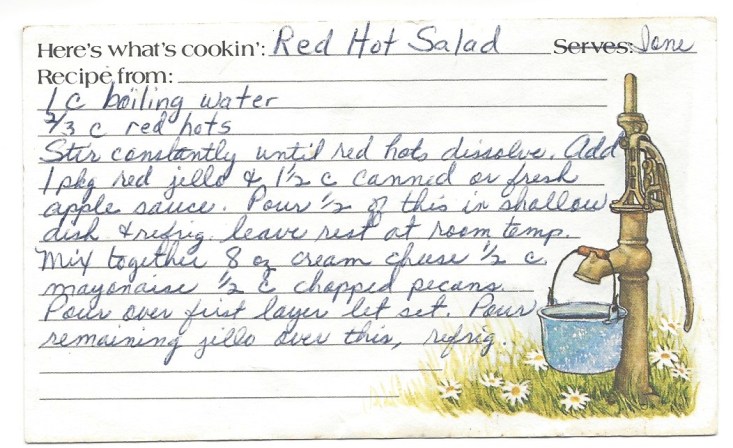 Here's what's cookin': Red Hot Salad Serves: Jane
Recipe from:
1 c boiling water
2/3 c red hots
Stir constantly until red hots dissolve. Add
1 pkg red jello & 1 1/2 c canned or fresh
apple sauce. Pour 1/2 of this in shallow
dish & refrig. leave rest at room temp.
Mix together 8 oz cream cheese 1/2 c
mayonaise 1/2 c chopped pecans.
Pour over first layer let set. Pour
remaining jello over this, refrig.